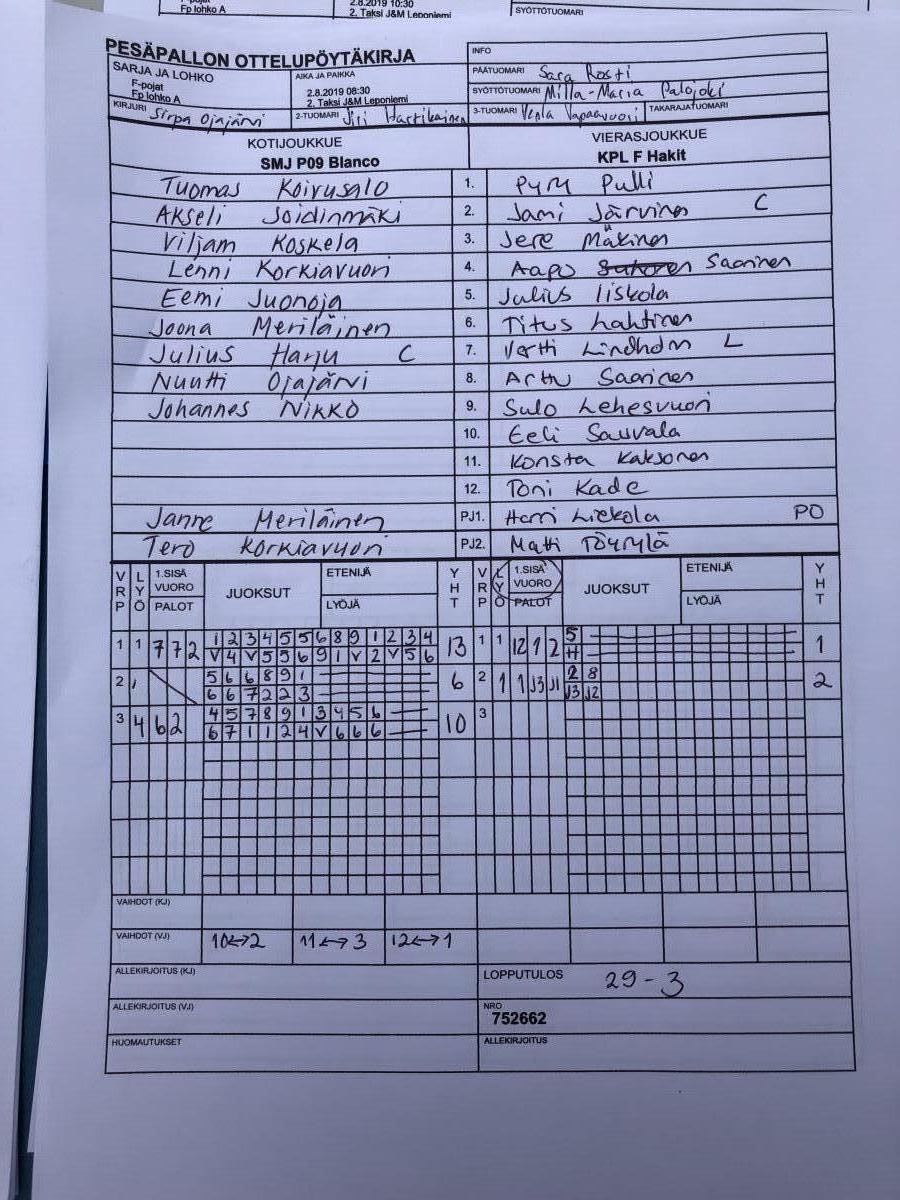 Fp lohko A
2.8.2019 10:30
2. Taksi J&M Leponiemi
SYÖTTÖTUOMARI
PESÄPALLON OTTELUPÖYTÄKIRJA
INFO
SARJA JA LOHKO
F-pojat
Fp lohko A
AIKA JA PAIKKA
2.8.2019 08:30
2. Taksi J&M Leponiemi
PÄÄTUOMARI Sara Rosti
SYÖTTÖTUOMARI Milla-Maria Palojoki
KIRJURI Sirpa Ojajärvi
2-TUOMARI Jiri Hartikainen
3-TUOMARI Venla Vapaavuori
TAKARAJATUOMARI
KOTIJOUKKUE
SMJ P09 Blanco
VIERASJOUKKUE
KPL F Hakit
Tuomas Koivusalo 1. Pyry Pulli
Akseli Joidinmäki 2. Jami Järvinen C
Viljam Koskela 3. Jere Mäkinen
Lenni Korkiavuori 4. Aapo Saarinen
Eemi Juonoja 5. Julius Iiskola
Joona Meriläinen 6. Titus Lahtinen
Julius Harju C 7. Vertti Lindholm L
Nuutti Ojajärvi 8. Arttu Saarinen
Johannes Nikko 9. Sulo Lehesvuori
10. Eeli Sauvala
11. Konsta Kaksonen
12. Toni Kade
Janne Meriläinen PJ1. Harri Liekola PO
Tero Korkiavuori PJ2. Matti Töyrylä
VRP LYÖ 1.SISÄ VUORO PALOT JUOKSUT ETENIJÄ LYÖJÄ YHT VRP LYÖ 1.SISÄ VUORO PALOT JUOKSUT ETENIJÄ LYÖJÄ YHT
1 1 7 7 2 1 2 3 4 5 5 6 8 9 1 2 3 4 13 1 1 12 1 2 5 1
V 4 V 5 5 6 9 1 V 2 V 5 6 H
2 1 5 6 6 8 9 1 6 2 1 1 J3 J1 2 8 2
6 6 7 2 2 3 J3 J2
3 4 6 2 4 5 7 8 9 1 3 4 5 6 10 3
6 7 1 1 2 4 V 6 6 6
VAIHDOT (KJ)
VAIHDOT (VJ) 10↔2 11↔3 12↔1
ALLEKIRJOITUS (KJ)
LOPPUTULOS 29-3
ALLEKIRJOITUS (VJ)
NRO
752662
HUOMAUTUKSET
ALLEKIRJOITUS